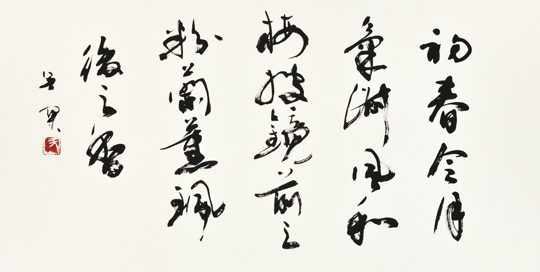 初春令月
氣淑風和
梅披鏡前之
粉蘭薰珮
後之香